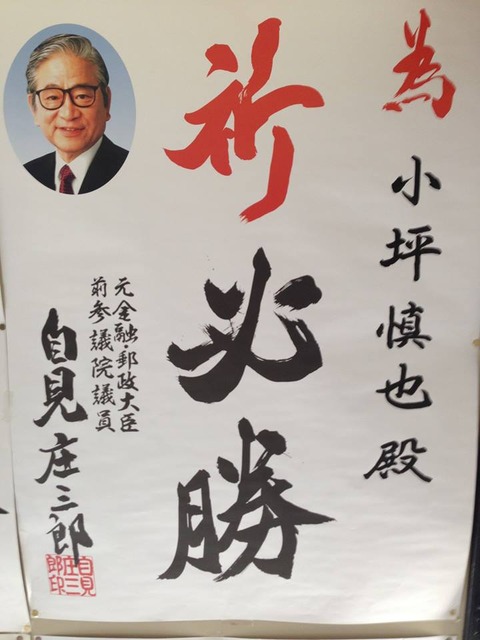 為
小坪慎也殿
祈必勝
元金融・郵政大臣
前参議院議員
自見庄三郎
自見
庄三
郎印